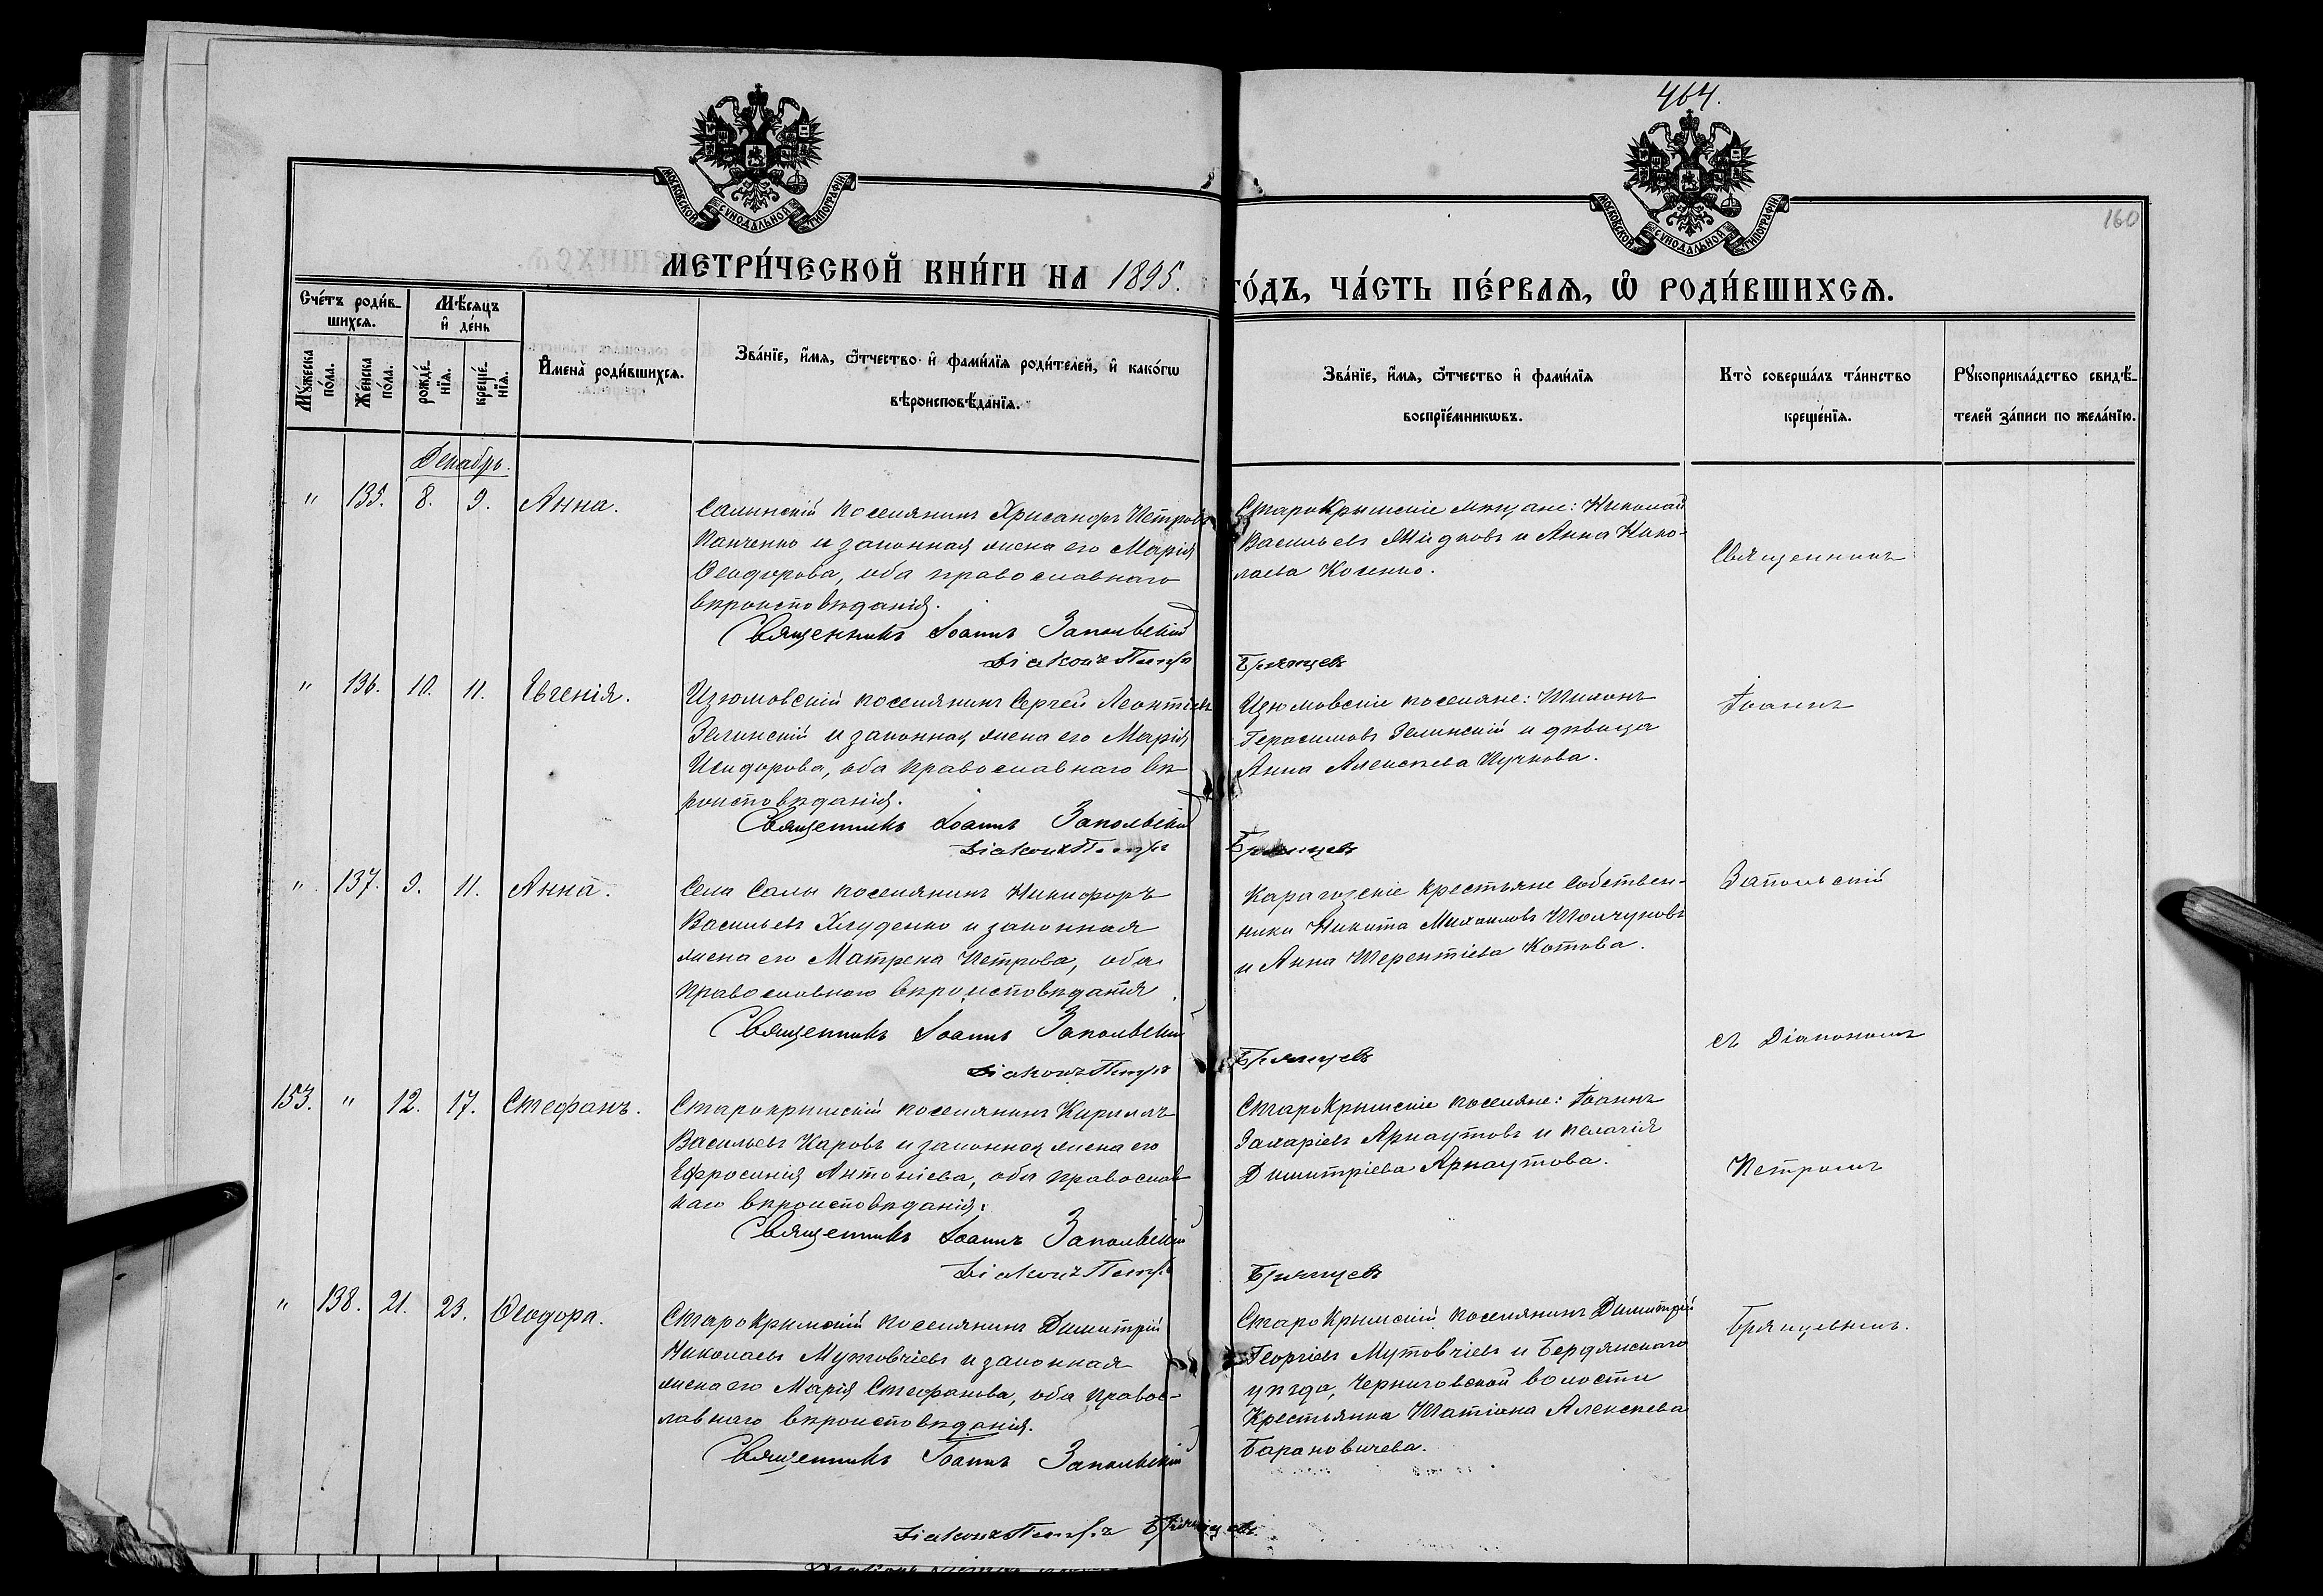 464.
160
МОСКОВСКОЙ СѴНОДАЛЬНОЙ ТИПОГРАФІИ
МОСКОВСКОЙ СѴНОДАЛЬНОЙ ТИПОГРАФІИ
МЕТРИ́ЧЕСКОЙ КНИ́ГИ НА 1895.
ГО́ДЪ, ЧА́СТЬ ПЕ́РВАѦ, Ѡ РОДИ́ВШИХСѦ.
Сче́тъ роди́в-
шихсѧ.
Мꙋ́жеска по́ла.
Же́нска по́ла.
Мѣ́сяцъ
и҆ де́нь
рожде́-
нїѧ.
креще́-
нїѧ.
И҆мена̀ роди́вшихсѧ.
Зва́нїе, и҆́мѧ, ѻ҆́тчество и҆ фами́лїѧ роди́телей, и҆ како́гѡ
вѣроисповѣ́данїѧ.
Зва́нїе, и҆́мѧ, ѻ҆́тчество и҆ фами́лїѧ
воспрїе́мникѡвъ.
Кто̀ соверша́лъ та́инство
креще́нїѧ.
Рꙋкоприкла́дство свидѣ́-
телей за́писи по жела́нїю.
Декабрь.
" 135. 8. 9. Анна.
Салынскій поселянинъ Хрисанфъ Петровъ
Панченко и законная жена его Марія
Ѳеодорова, оба православнаго
вѣроисповѣданія.
Священникъ Іоаннъ Запольскій
Діаконъ Петръ Брянцевъ
Старокрымскіе мѣщане: Николай
Васильевъ Жидковъ и Анна Нико-
лаева Коченко.
Священникъ
" 136. 10. 11. Евгенія.
Изюмовскій поселянинъ Сергей Леонтіевъ
Зелинскій и законная жена его Марія
Исидорова, оба православнаго вѣ
роисповѣданія.
Священникъ Іоаннъ Запольскій
Діаконъ Петръ Брянцевъ
Изюмовскіе поселяне: Тихонъ
Герасимовъ Зелинскій и дѣвица
Анна Алексѣева Пучкова.
Іоаннъ
" 137. 9. 11. Анна.
Села Салы поселянинъ Никифоръ
Васильевъ Хлуденко и законная
жена его Матрена Петрова, оба
православнаго вѣроисповѣданія.
Священникъ Іоаннъ Запольскій
Діаконъ Петръ Брянцевъ
Карагозскіе крестьяне собствен-
ники Никита Михаиловъ Толчуновъ
и Анна Терентіева Котова.
Запольскій
съ Діакономъ
153. " 12. 17. Стефанъ.
Старокрымскій поселянинъ Кириллъ
Васильевъ Чаровъ и законная жена его
Ефросинія Антоніева, оба православ
наго вѣроисповѣданія.
Священникъ Іоаннъ Запольскій
Діаконъ Петръ Брянцевъ
СтароКрымскіе поселяне: Іоаннъ
Захаріевъ Арнаутовъ и Пелагія
Димитріева Арнаутова.
Петромъ
" 138. 21. 23. Ѳеодора.
СтароКрымскій поселянинъ Димитрій
Николаевъ Мутовчіевъ и законная
жена его Марія Стефанова, оба правос-
лавнаго вѣроисповѣданія.
Священникъ Іоаннъ Запольскій
Діаконъ Петръ Брянцевъ
СтароКрымскій поселянинъ Димитрій
Георгіевъ Мутовчіевъ и Бердянскаго
уѣзда, Черниговской волости
Крестьянка Татіана Алексѣева
Барановичева.
Брянцевымъ.